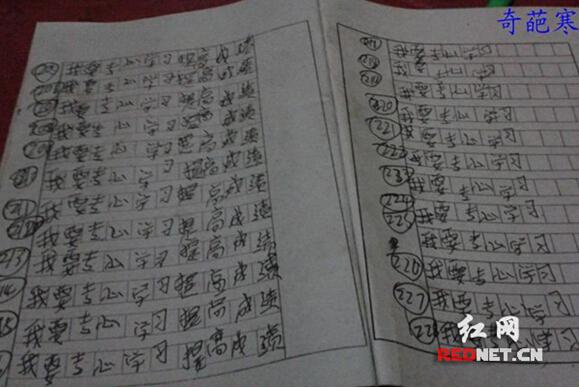 奇葩寒
我要专心学习提高成绩
我要专心学习提高成绩
我要专心学习提高成绩
我要专心学习提高成绩
我要专心学习提高成绩
我要专心学习提高成绩
211 我要专心学习提高成绩
212 我要专心学习提高成绩
213 我要专心学习提高成绩
14 我要专心学习提高成绩
15 我要专心学习提高成绩
我要专心学习提高成绩
我要专心学习
我要专心学习
我要专心学习
220 我要专心学习
221 我要专心学习
222 我要专心学习
223 我要专心学习
224 我要专心学习
225 我要专心学习
我要专心学习
226 我要专心学习
227 我要专心学习
228 我要专心学习
红网
REDNET.CN